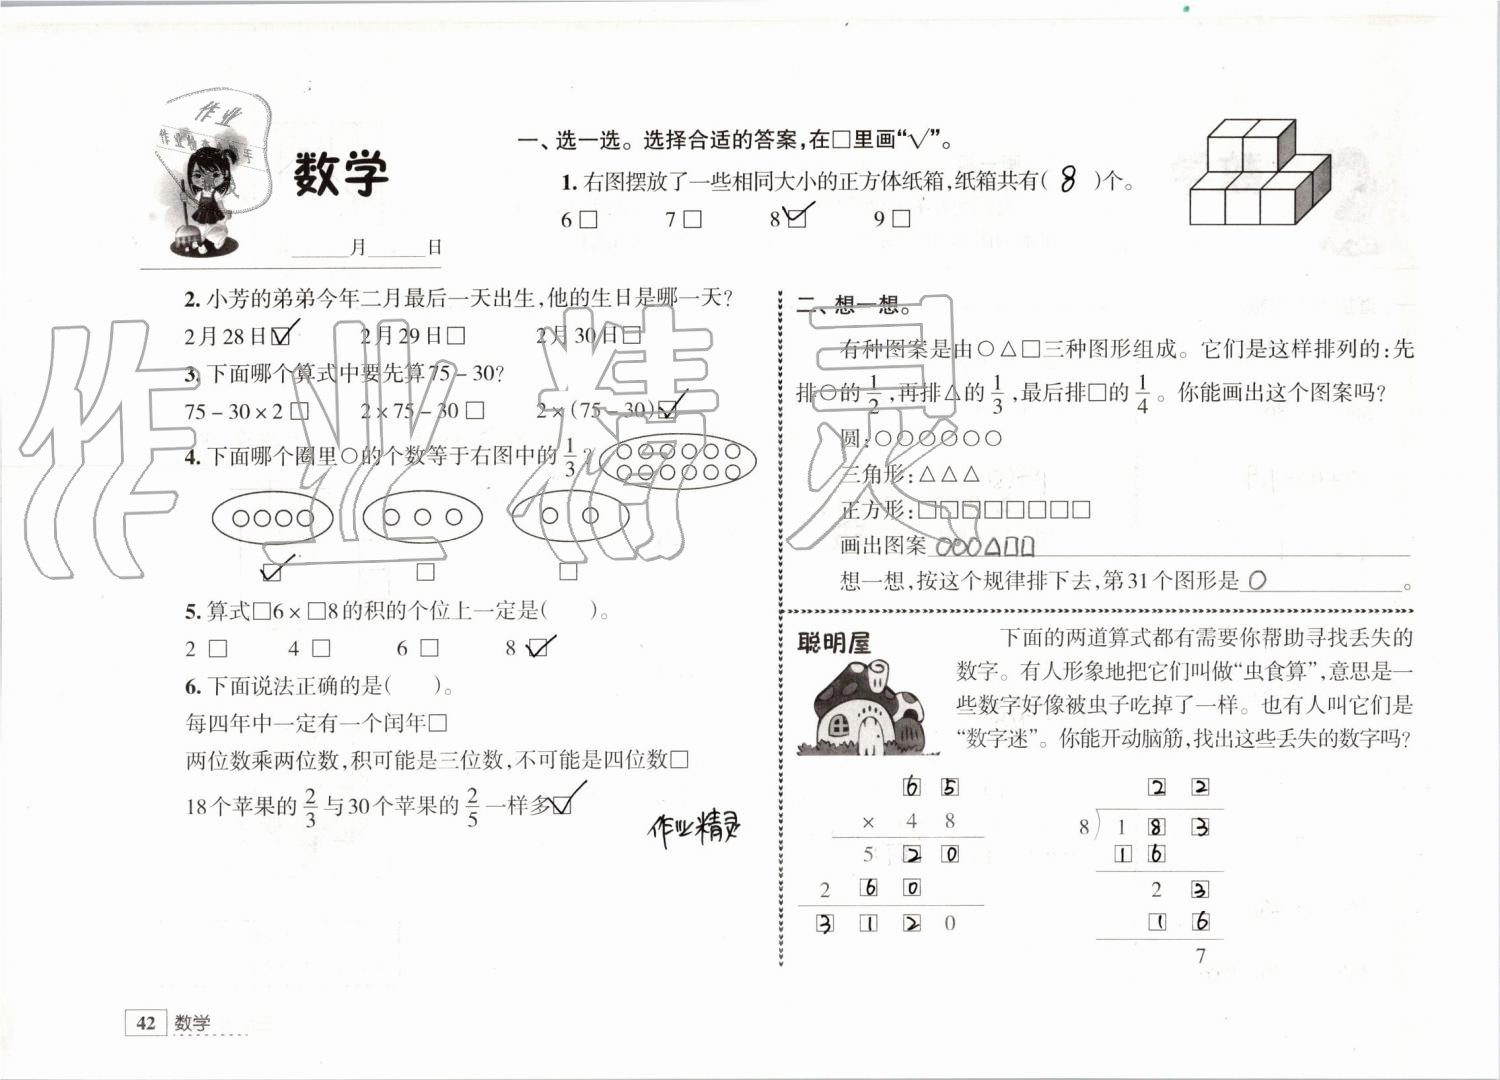 作业
作业检查小助手
数学
______月______日
一、选一选。选择合适的答案,在□里画“√”。
1. 右图摆放了一些相同大小的正方体纸箱,纸箱共有( 8 )个。
6□ 7□ 8☑ 9□
2. 小芳的弟弟今年二月最后一天出生,他的生日是哪一天?
2月28日☑ 2月29日□ 2月30日□
3. 下面哪个算式中要先算75-30?
75-30×2□ 2×75-30□ 2×(75-30)☑
4. 下面哪个圈里○的个数等于右图中的1/3?
☑ □ □
5. 算式□6×□8的积的个位上一定是( )。
2□ 4□ 6□ 8☑
6. 下面说法正确的是( )。
每四年中一定有一个闰年□
两位数乘两位数,积可能是三位数,不可能是四位数□
18个苹果的2/3与30个苹果的2/5一样多☑
作业精灵
二、想一想。
有种图案是由○△□三种图形组成。它们是这样排列的:先
排○的1/2,再排△的1/3,最后排□的1/4。你能画出这个图案吗?
圆:○○○○○○
三角形:△△△
正方形:□□□□□□□□
画出图案 ○○○△□□
想一想,按这个规律排下去,第31个图形是 ○ 。
聪明屋
下面的两道算式都有需要你帮助寻找丢失的
数字。有人形象地把它们叫做“虫食算”,意思是一
些数字好像被虫子吃掉了一样。也有人叫它们是
“数字迷”。你能开动脑筋,找出这些丢失的数字吗?
6 5
× 4 8
5 2 0
2 6 0
3 1 2 0
2 2
8 ) 1 8 3
1 6
2 3
1 6
7
42 数学
作业精灵